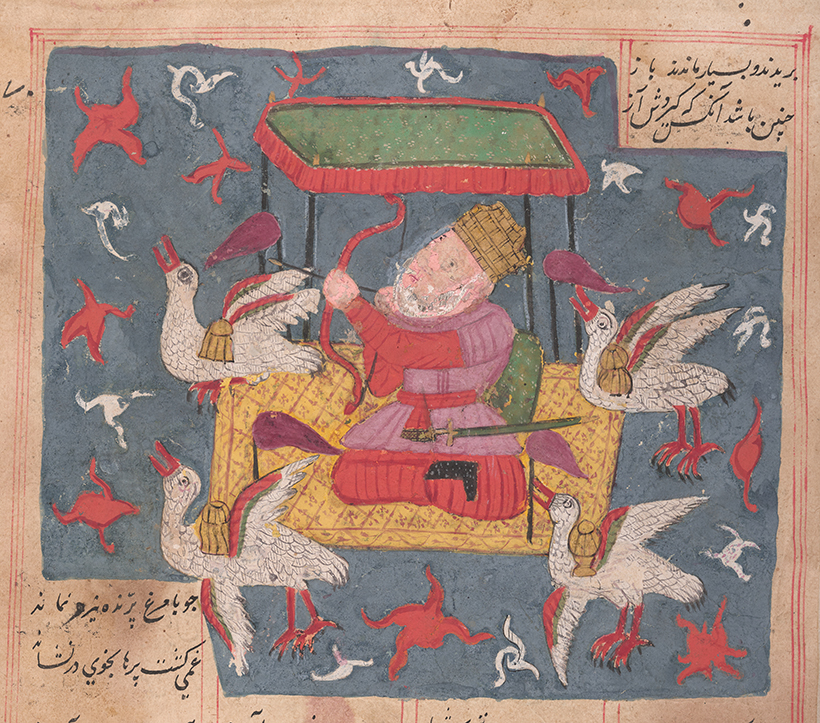 پریدند و بسیار ماندند باز
چنین باشد آنکس که گیردش آز
چو با مرغ پرّنده نیرو نماند
غمی گشت پرها بخوی درنشاند